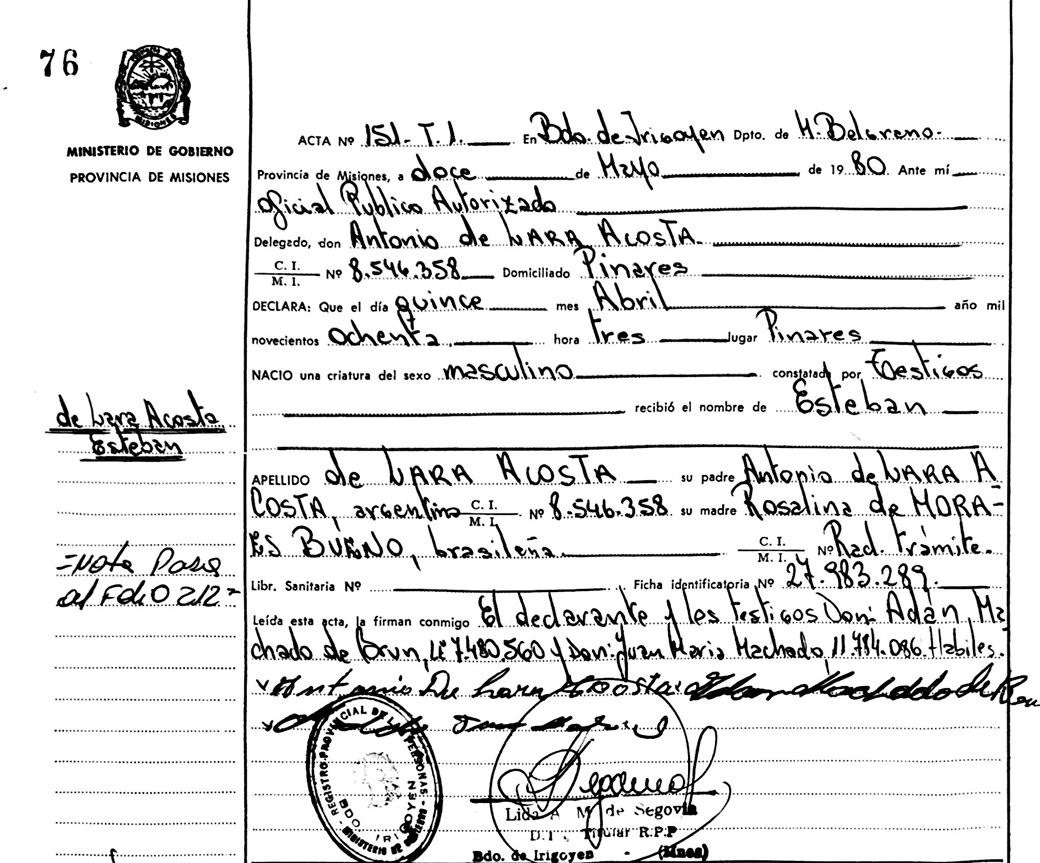 76
MISIONES
MINISTERIO DE GOBIERNO
PROVINCIA DE MISIONES
ACTA Nº 151-T.1. En Bdo. de Irigoyen Dpto. de M. Belgrano.
Provincia de Misiones, a doce de Mayo de 1980. Ante mí
Oficial Publico Autorizado
Delegado, don Antonio de LARA ACOSTA.
C. I.
M. I. Nº 8.546.358 Domiciliado Pinares
DECLARA: Que el día quince mes Abril año mil
novecientos ochenta, hora tres lugar Pinares
NACIO una criatura del sexo masculino constatada por Testigos
recibió el nombre de Esteban
de Lara Acosta
Esteban
APELLIDO de LARA ACOSTA su padre Antonio de LARA A
COSTA, argentino C. I. M. I. Nº 8.546.358 su madre Rosalina de MORA-
ES BUENO, brasileña. C. I. M. I. Nº Rad. trámite.
Libr. Sanitaria Nº Ficha identificatoria Nº 27.983.289.
=Nota Pase
al Folio 212=
Leída esta acta, la firman conmigo El declarante y los testigos Don: Adán, Ma
chado de Brun, 7.480.560 y Don: Juan Maria Machado, 11.784.086. Habiles.
Antonio De Lara Acosta Adan Machado de
REGISTRO PROVINCIAL DE LAS PERSONAS
BDO IRIGOYEN
MINISTERIO DE GOBIERNO
Lida A M de Segovia
Titular R.P.P
Bdo. de Irigoyen - (Mnes)